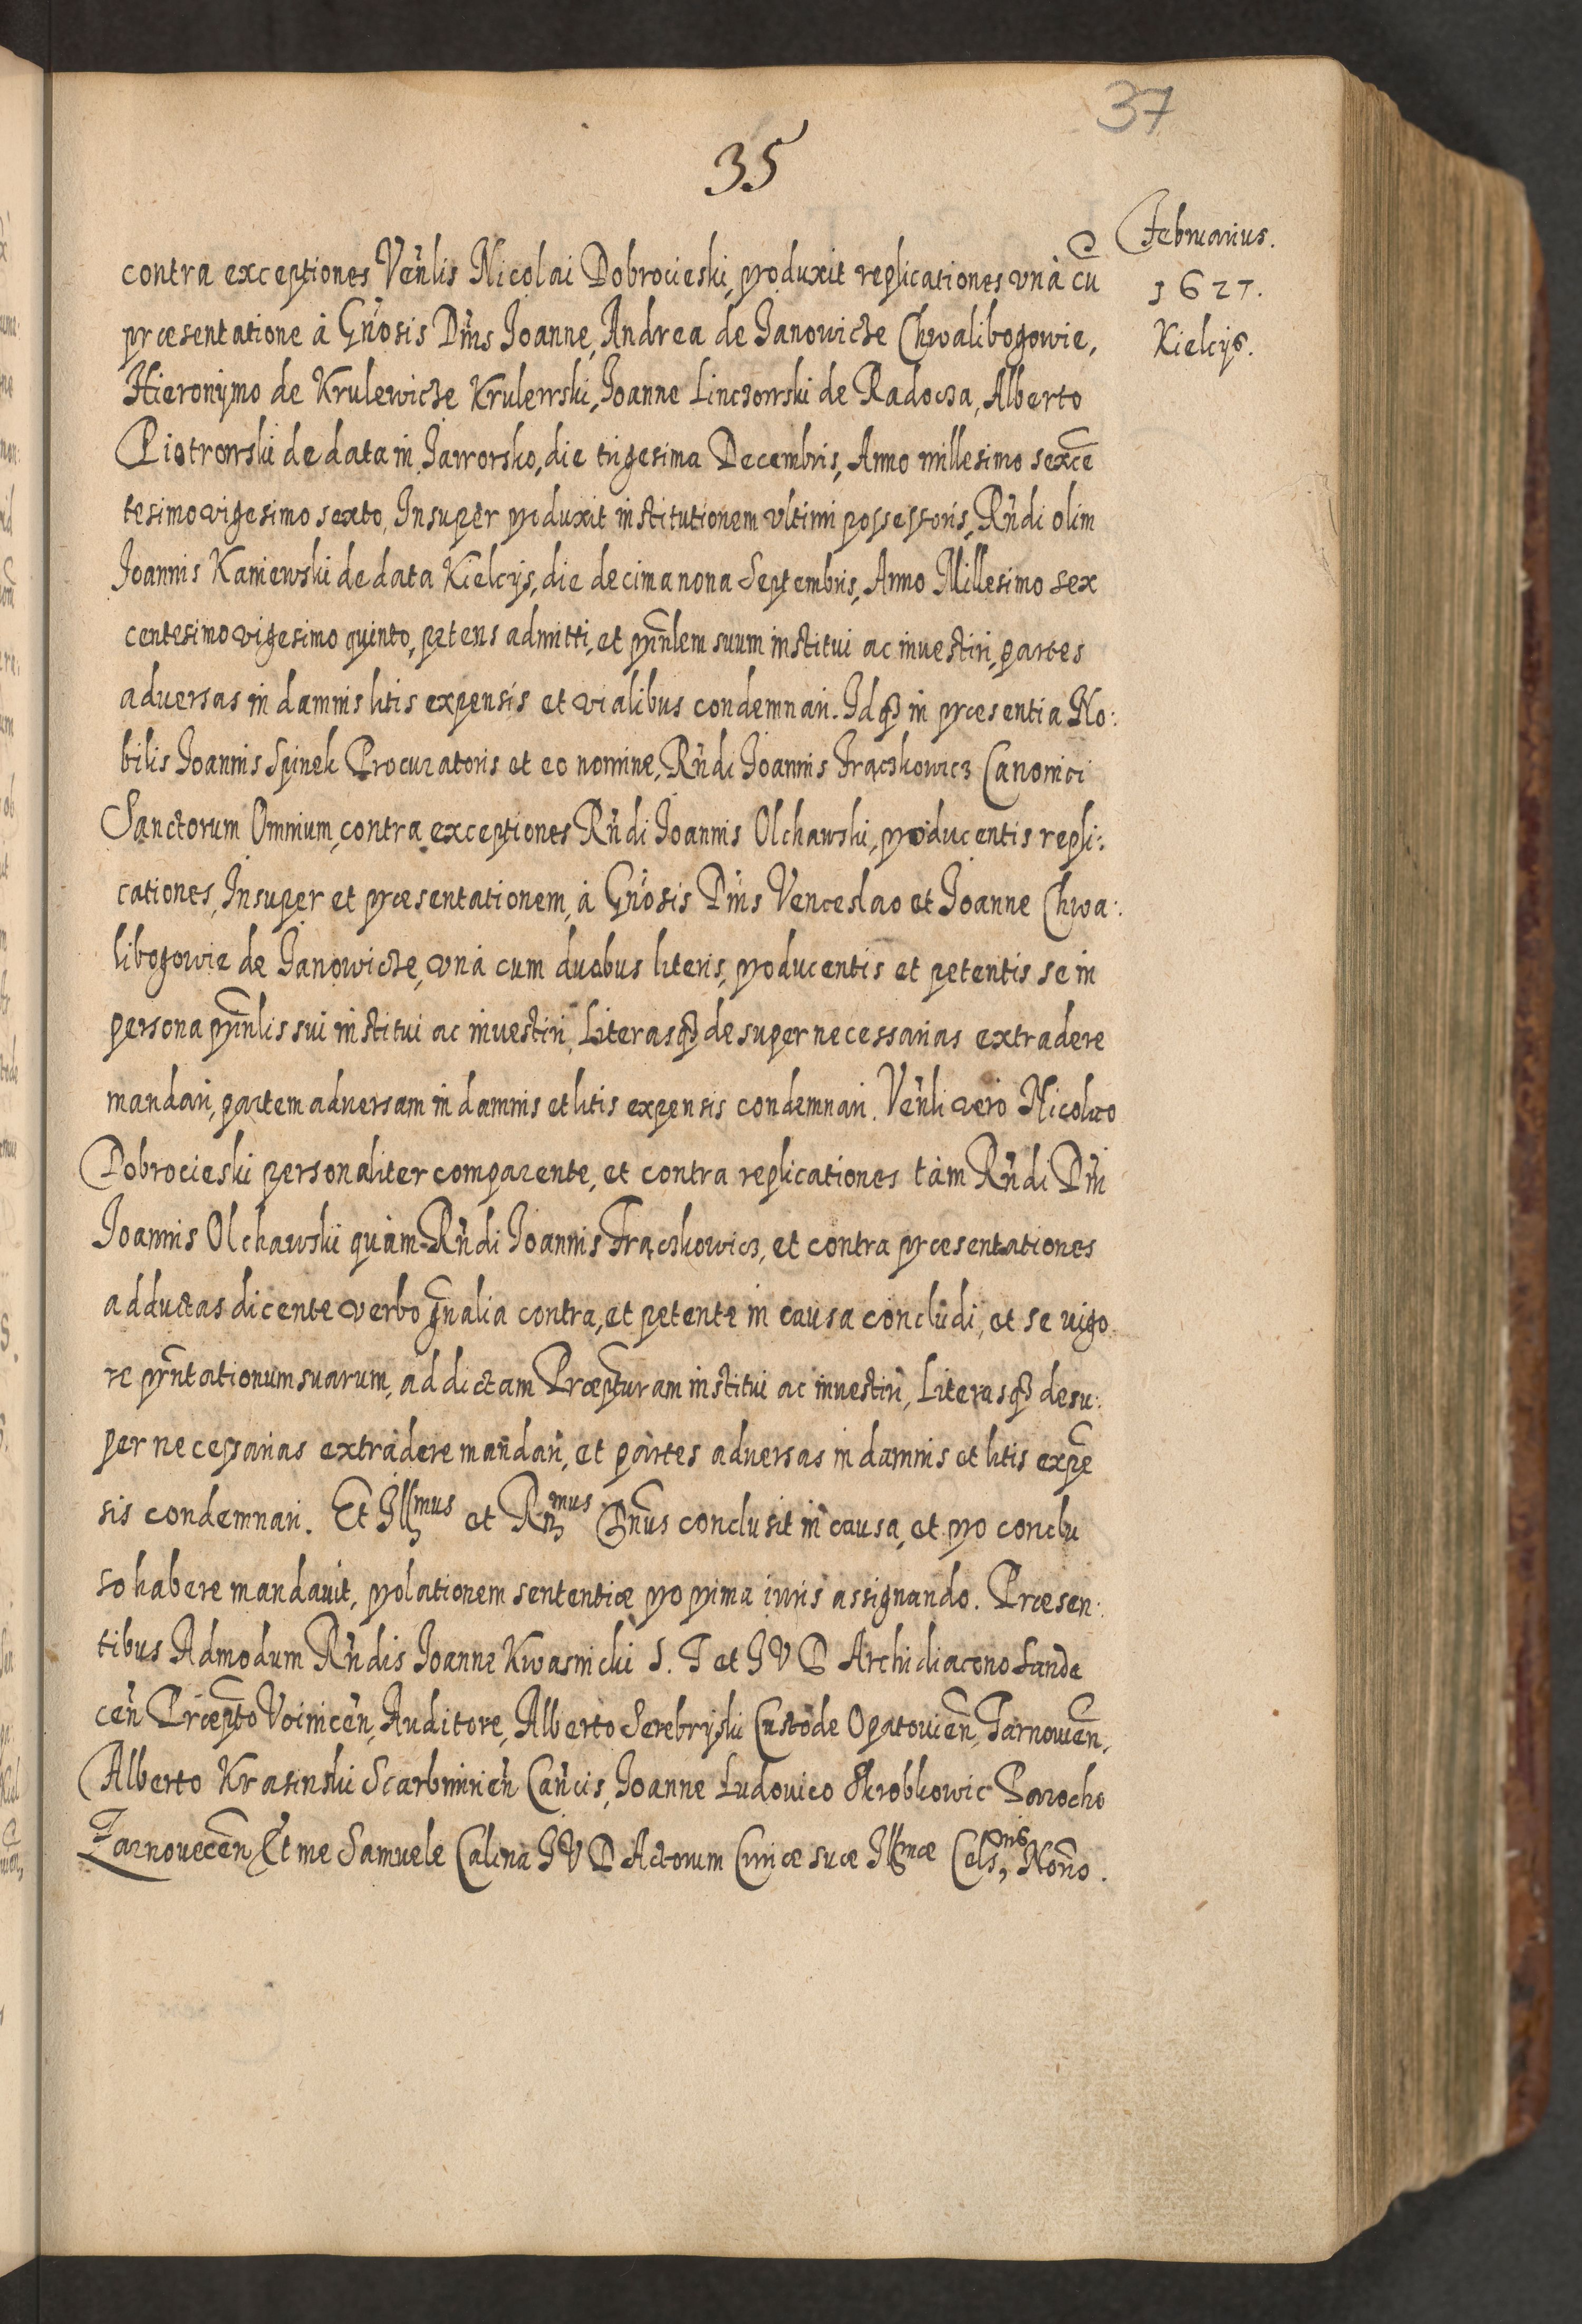 37
35
Februarius.
1627.
Kielcijs.
contra exceptiones Ven̄lis Nicolai Dobrocieski, produxit replicationes vnà cū
præsentatione à Gn̄osis Dn̄is Joanne, Andrea de Janowicze Chwalibogowie,
Hieronÿmo de Krulewicze Krulewski, Joanne Linczowski de Radocza, Alberto
Piotrowski de data in Jaworsko, die trigesima Decembris, Anno millesimo sexcē
tesimo vigesimo sexto, Insuper produxit institutionem vltimi possessoris, Rn̄di olim
Joannis Kaniewski de data Kielcijs, die decima nona Septembris, Anno Millesimo sex
centesimo vigesimo quinto, petens admitti, et prin̄lem suum institui ac inuestiri, partes
aduersas in damnis litis expensis et vialibus condemnari. Idq3 in præsentia No:
bilis Joannis Spinek Procuratoris et eo nomine, Rn̄di Joannis Frączkowicz Canonici
Sanctorum Omnium, contra exceptiones Rn̄di Joannis Olchawski, producentis repli:
cationes, Insuper et præsentationem, à Gn̄osis Dn̄is Venceslao et Joanne Chwa:
libogowie de Janowicze, vnà cum duobus literis, producentis et petentis se in
persona prin̄lis sui institui ac inuestiri, Literasq3 desuper necessarias extradere
mandari, partem aduersam in damnis et litis expensis condemnari. Ven̄li verò Nicolao
Dobrocieski personaliter comparente, et contra replicationes tàm Rn̄di Dn̄i
Joannis Olchawski quàm Rn̄di Joannis Frączkowicz, et contra præsentationes
adductas dicente verbo gn̄alia contra, et petente in causa concludi, et se vigo
re prn̄tationum suarum, ad dictam Præp̄turam institui ac inuestiri, Literasq3 desu:
per necessarias extradere mandari, et partes aduersas in damnis et litis expē
sis condemnari. Et Illmus et Rn̄mus Dn̄us conclusit in causa, et pro conclu
so habere mandauit, prolationem sententiæ pro prima iuris assignando. Præsen:
tibus Admodum Rn̄dis Joanne Kwasnicki S. T et I V D Archidiacono Sande
cen̄ Præp̄to Voinicen̄, Auditore, Alberto Serebryski Custode Opatouien̄, Tarnouien̄,
Alberto Krasinski Scarbimirien̄ Can̄cis, Joanne Ludouico Skrobkowic Parocho
Tarnouecen̄ Et me Samuele Calina I V D Actorum Curiæ suæ Illmæ Cels,nis Non̄o.